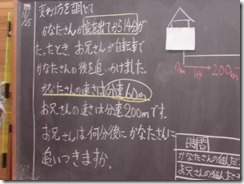 11/25
変わり方を調べて
かなたさんが家を出てから14分が
たったとき、お兄さんが自転車で
かなたさんの後を追いかけました。
かなたさんの速さは分速60m
お兄さんの速さは分速200mです。
お兄さんは何分後にかなたさんに
追いつきますか。
200m
時間
かなたさんの進んだ
お兄さんの進んだ